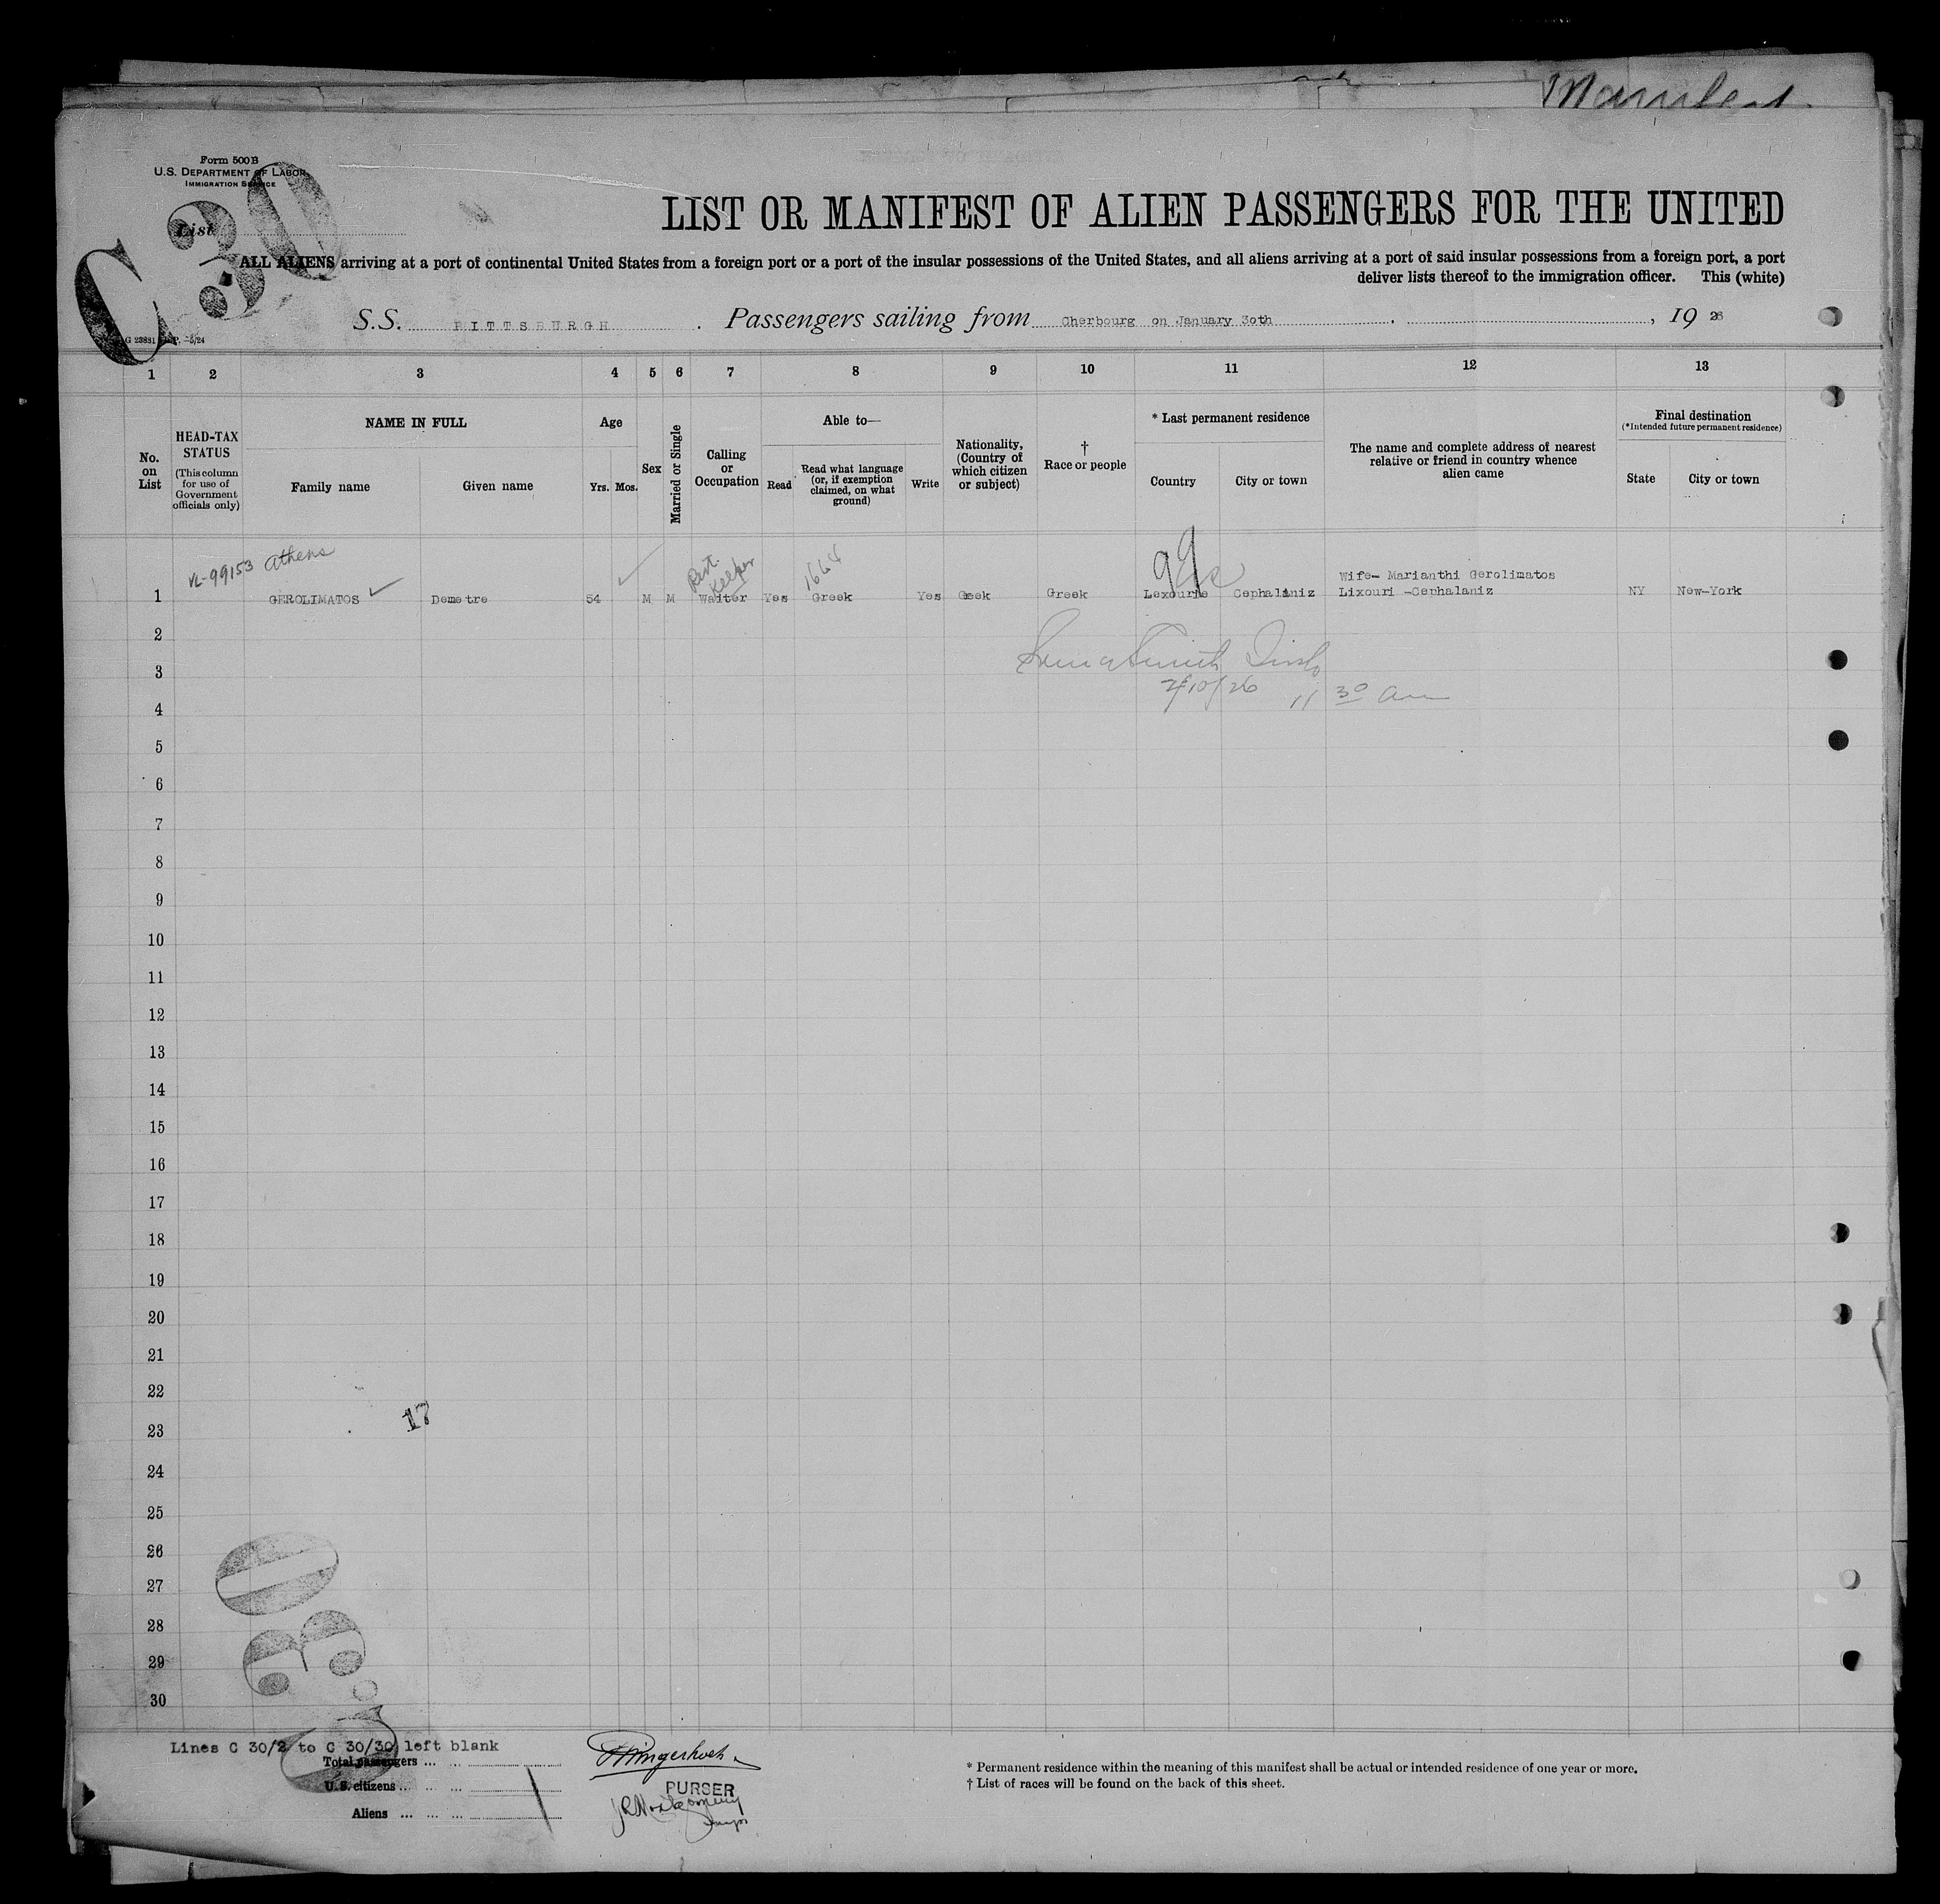 Manifest
Form 500 B
U.S. DEPARTMENT OF LABOR
IMMIGRATION SERVICE
List
C 30
LIST OR MANIFEST OF ALIEN PASSENGERS FOR THE UNITED
ALL ALIENS arriving at a port of continental United States from a foreign port or a port of the insular possessions of the United States, and all aliens arriving at a port of said insular possessions from a foreign port, a port
deliver lists thereof to the immigration officer. This (white)
S.S. PITTSBURGH . Passengers sailing from Cherbourg on January 3oth . , 19 26
1 2 3 4 5 6 7 8 9 10 11 12 13
No. on List
HEAD-TAX STATUS
(This column for use of Government officials only)
NAME IN FULL
Family name
Given name
Age
Yrs. Mos.
Sex
Married or Single
Calling or Occupation
Able to—
Read
Read what language (or, if exemption claimed, on what ground)
Write
Nationality, (Country of which citizen or subject)
† Race or people
* Last permanent residence
Country
City or town
The name and complete address of nearest relative or friend in country whence alien came
Final destination
(*Intended future permanent residence)
State
City or town
VL-99153 Athens
Rest. Keeper
1664
99
Wife- Marianthi Gerolimatos
1 GEROLIMATOS Demetre 54 M M Waiter Yes Greek Yes Geek Greek Lexourie Cephaliniz Lixouri -Cephalaniz NY New-York
2
3
2/10/26 11 30 am
4
5
6
7
8
9
10
11
12
13
14
15
16
17
18
19
20
21
22
17
23
24
25
26
27
28
29
30
C 30
Lines C 30/2 to C 30/30 left blank
Total passengers ... ...
U.S. citizens ... ... ...
Aliens ... ... ...
PURSER
* Permanent residence within the meaning of this manifest shall be actual or intended residence of one year or more.
† List of races will be found on the back of this sheet.